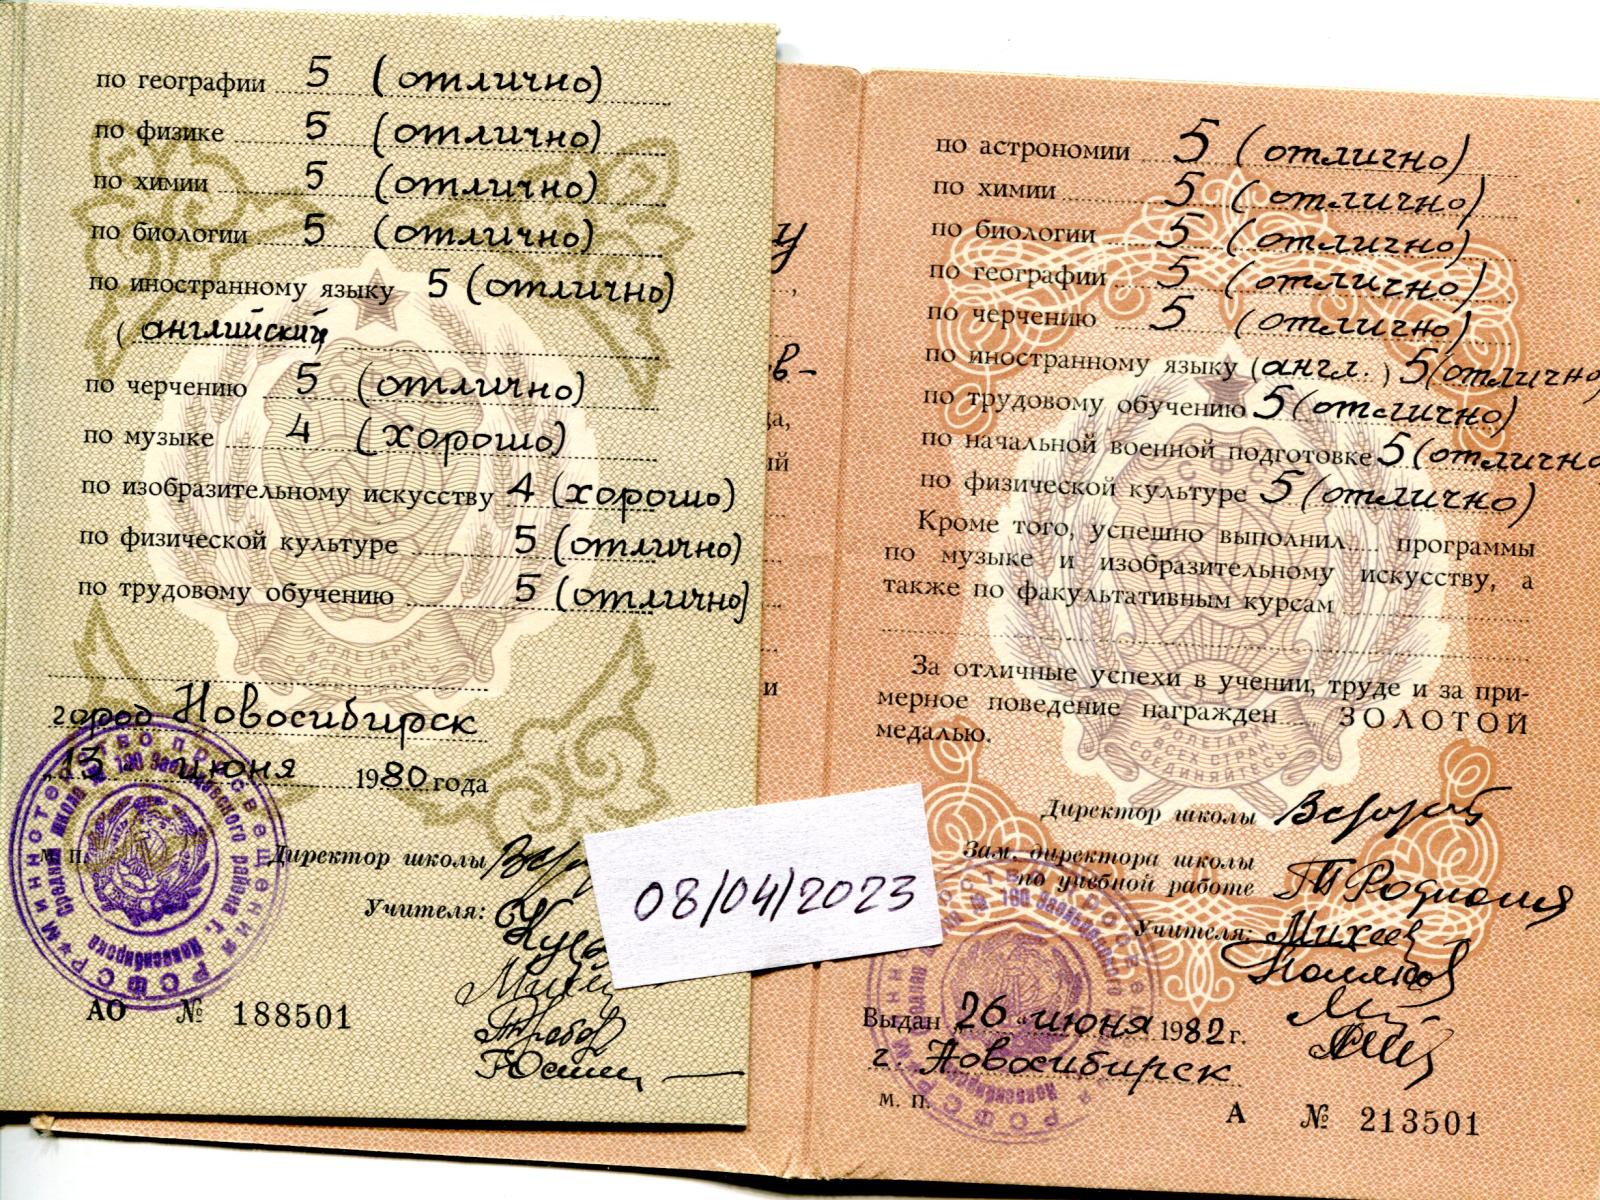 по географии 5 (отлично)
по физике 5 (отлично)
по химии 5 (отлично)
по биологии 5 (отлично)
по иностранному языку 5 (отлично)
(английский)
по черчению 5 (отлично)
по музыке 4 (хорошо)
по изобразительному искусству 4 (хорошо)
по физической культуре 5 (отлично)
по трудовому обучению 5 (отлично)
город Новосибирск
„13 " июня 1980 года
м. п.
Директор школы
Учителя:
АО № 188501
08/04/2023
по астрономии 5 (отлично)
по химии 5 (отлично)
по биологии 5 (отлично)
по географии 5 (отлично)
по черчению 5 (отлично)
по иностранному языку (англ.) 5 (отлично
по трудовому обучению 5 (отлично)
по начальной военной подготовке 5 (отлично
по физической культуре 5 (отлично)
Кроме того, успешно выполнил программы
по музыке и изобразительному искусству, а
также по факультативным курсам
За отличные успехи в учении, труде и за при-
мерное поведение награжден ЗОЛОТОЙ
медалью.
Директор школы
Зам. директора школы
по учебной работе
Учителя: Михеев
Выдан „26 " июня 1982 г.
г. Новосибирск
м. п.
А № 213501